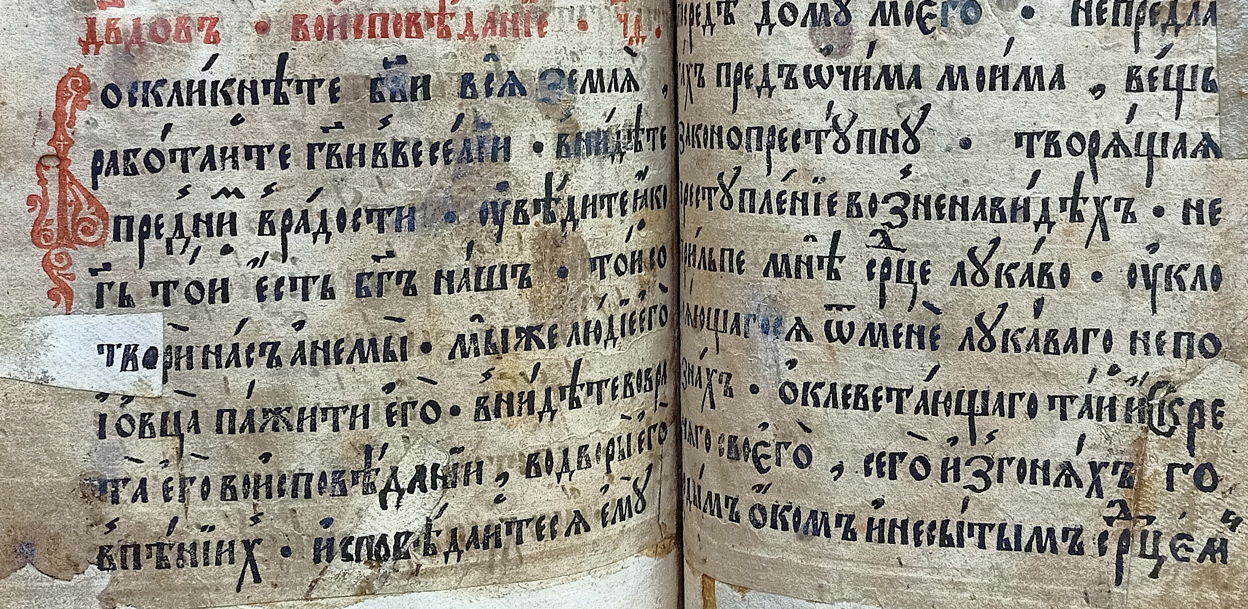 дв҃довъ · воисповѣданїе · ч҃д ·
Воскли́кнѣте бг҃ви всѧ̀ землѧ̀ ,
рабо́таите гв҃и ввесе́лїи · вни́дѣте
пред̾ни́м вра́дости · оу҆вѣ́дите ꙗ҆ко
гь҃ то́и є҆́сть бг҃ъ на́шъ · то́и со
твори на́съ а҆немы̀ · мы́же лю́дїе є҆гѡ̀
ї҆о́вца па́жити є҆го̀ · вни́дѣте вовра
та̀ є҆го̀ воисповѣ́данїи , водворы̀ є҆го̀
впѣ́нїих̾ · и҆сповѣ́даитесѧ є҆мꙋ̀
передѣ̀ до́мꙋ моє҆го̀ · непредла
гахъ предъѡчи́ма мои́ма , ве́щь
законопрестꙋ́пнꙋ · творѧ́щаѧ
престꙋпле́нїе возненави́дѣхъ · не
прильпе мнѣ̀ ср҃це лꙋка́во · оу҆кло
нѧ́ющагосѧ ѿменѐ лꙋка́ваго непо
зна́хъ · о҆клевета́ющаго та́и и҆скре
нѧго своєго̀ , сего̀ и҆згонѧ́хъ го
рдымъ о҆́комъ и҆несы́тымъ ср҃це́мъ